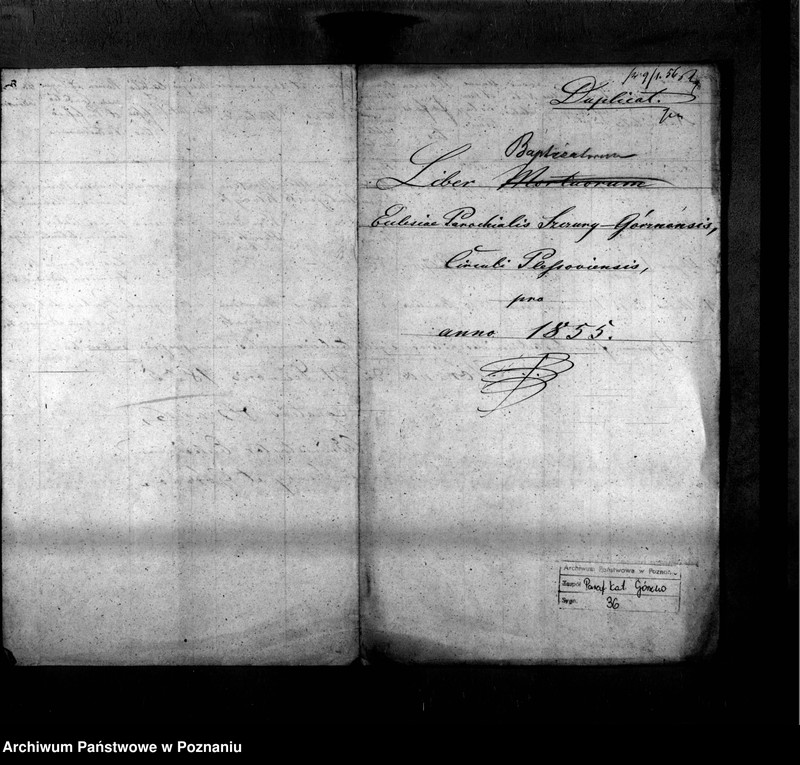 Duplicat.
Baptizatorum
Liber Mortuorum
Eclesiae Parochialis Szczury-Górznensis,
Circuli Pleszoviensis,
pro
anno 1855.
Archiwum Państwowe w Poznaniu
Zespół Paraf. kat. Górzno
Sygn. 36
Archiwum Państwowe w Poznaniu